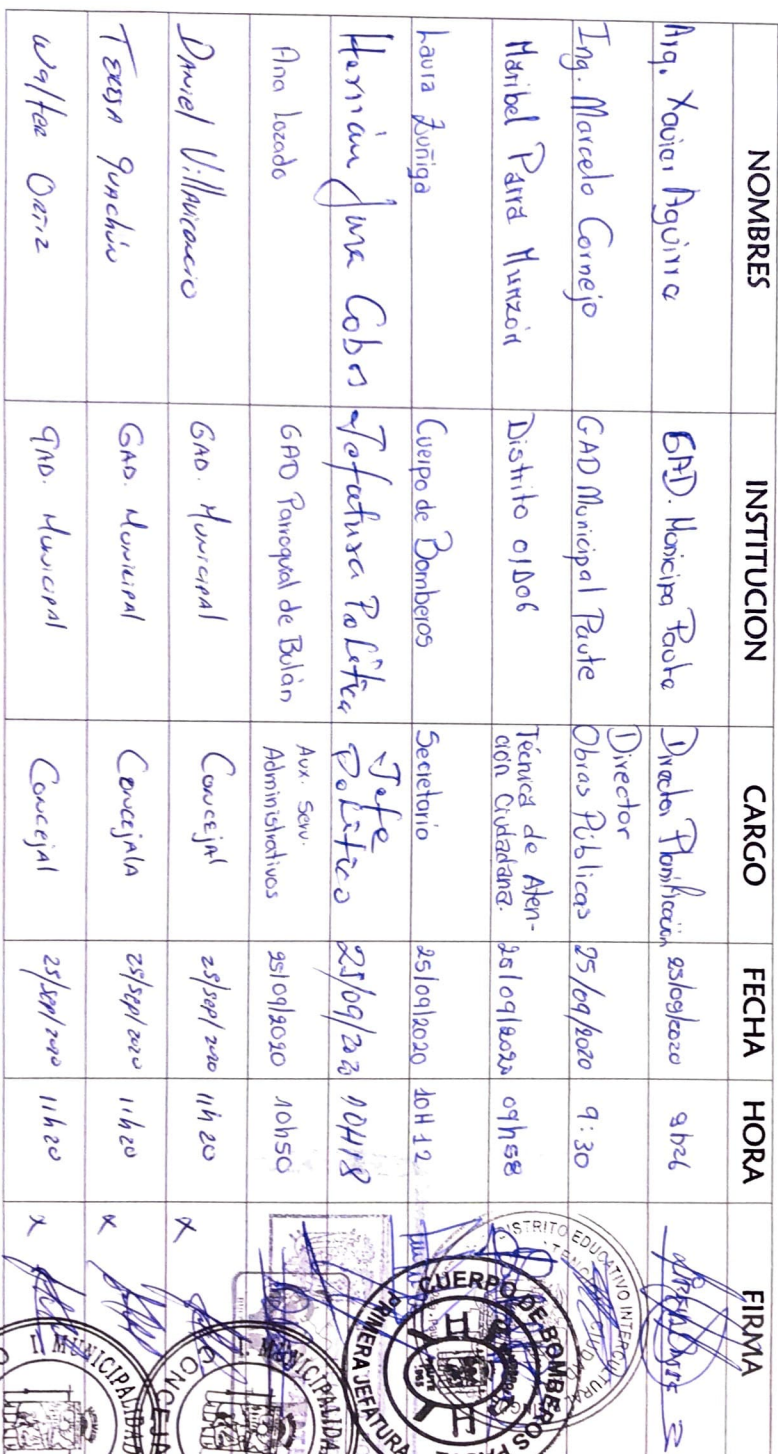 NOMBRES INSTITUCION CARGO FECHA HORA FIRMA
Arq. Xavier Aguirre GAD. Municipa Paute Director Planificación 25/09/2020 9h26
Ing. Marcelo Cornejo GAD Municipal Paute Director Obras Públicas 25/09/2020 9:30
Maribel Parra Munzón Distrito 01D06 Técnica de Aten-
ción Ciudadana. 25/09/2020 09h58
Laura Zuñiga Cuerpo de Bomberos Secretario 25/09/2020 10H12
Hernán Jara Cobos Jefatura Política Jefe Político 25/09/2020 10H18
Ana Lozado GAD Parroquial de Bulán Aux. Serv.
Administrativos 25/09/2020 10h50
Daniel Villavicencio GAD. Municipal Concejal 25/sep/2020 11h20 x
Teresa Guachún GAD. Municipal Concejala 25/sep/2020 11h20 x
Walter Ortiz GAD. Municipal Concejal 25/sep/2020 11h20 x
DISTRITO EDUCATIVO INTERCULTURAL
CUERPO DE BOMBEROS
PRIMERA JEFATURA
I. MUNICIPALIDAD
I. MUNICIPALIDAD